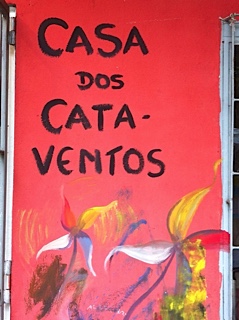 CASA
DOS
CATA-
VENTOS